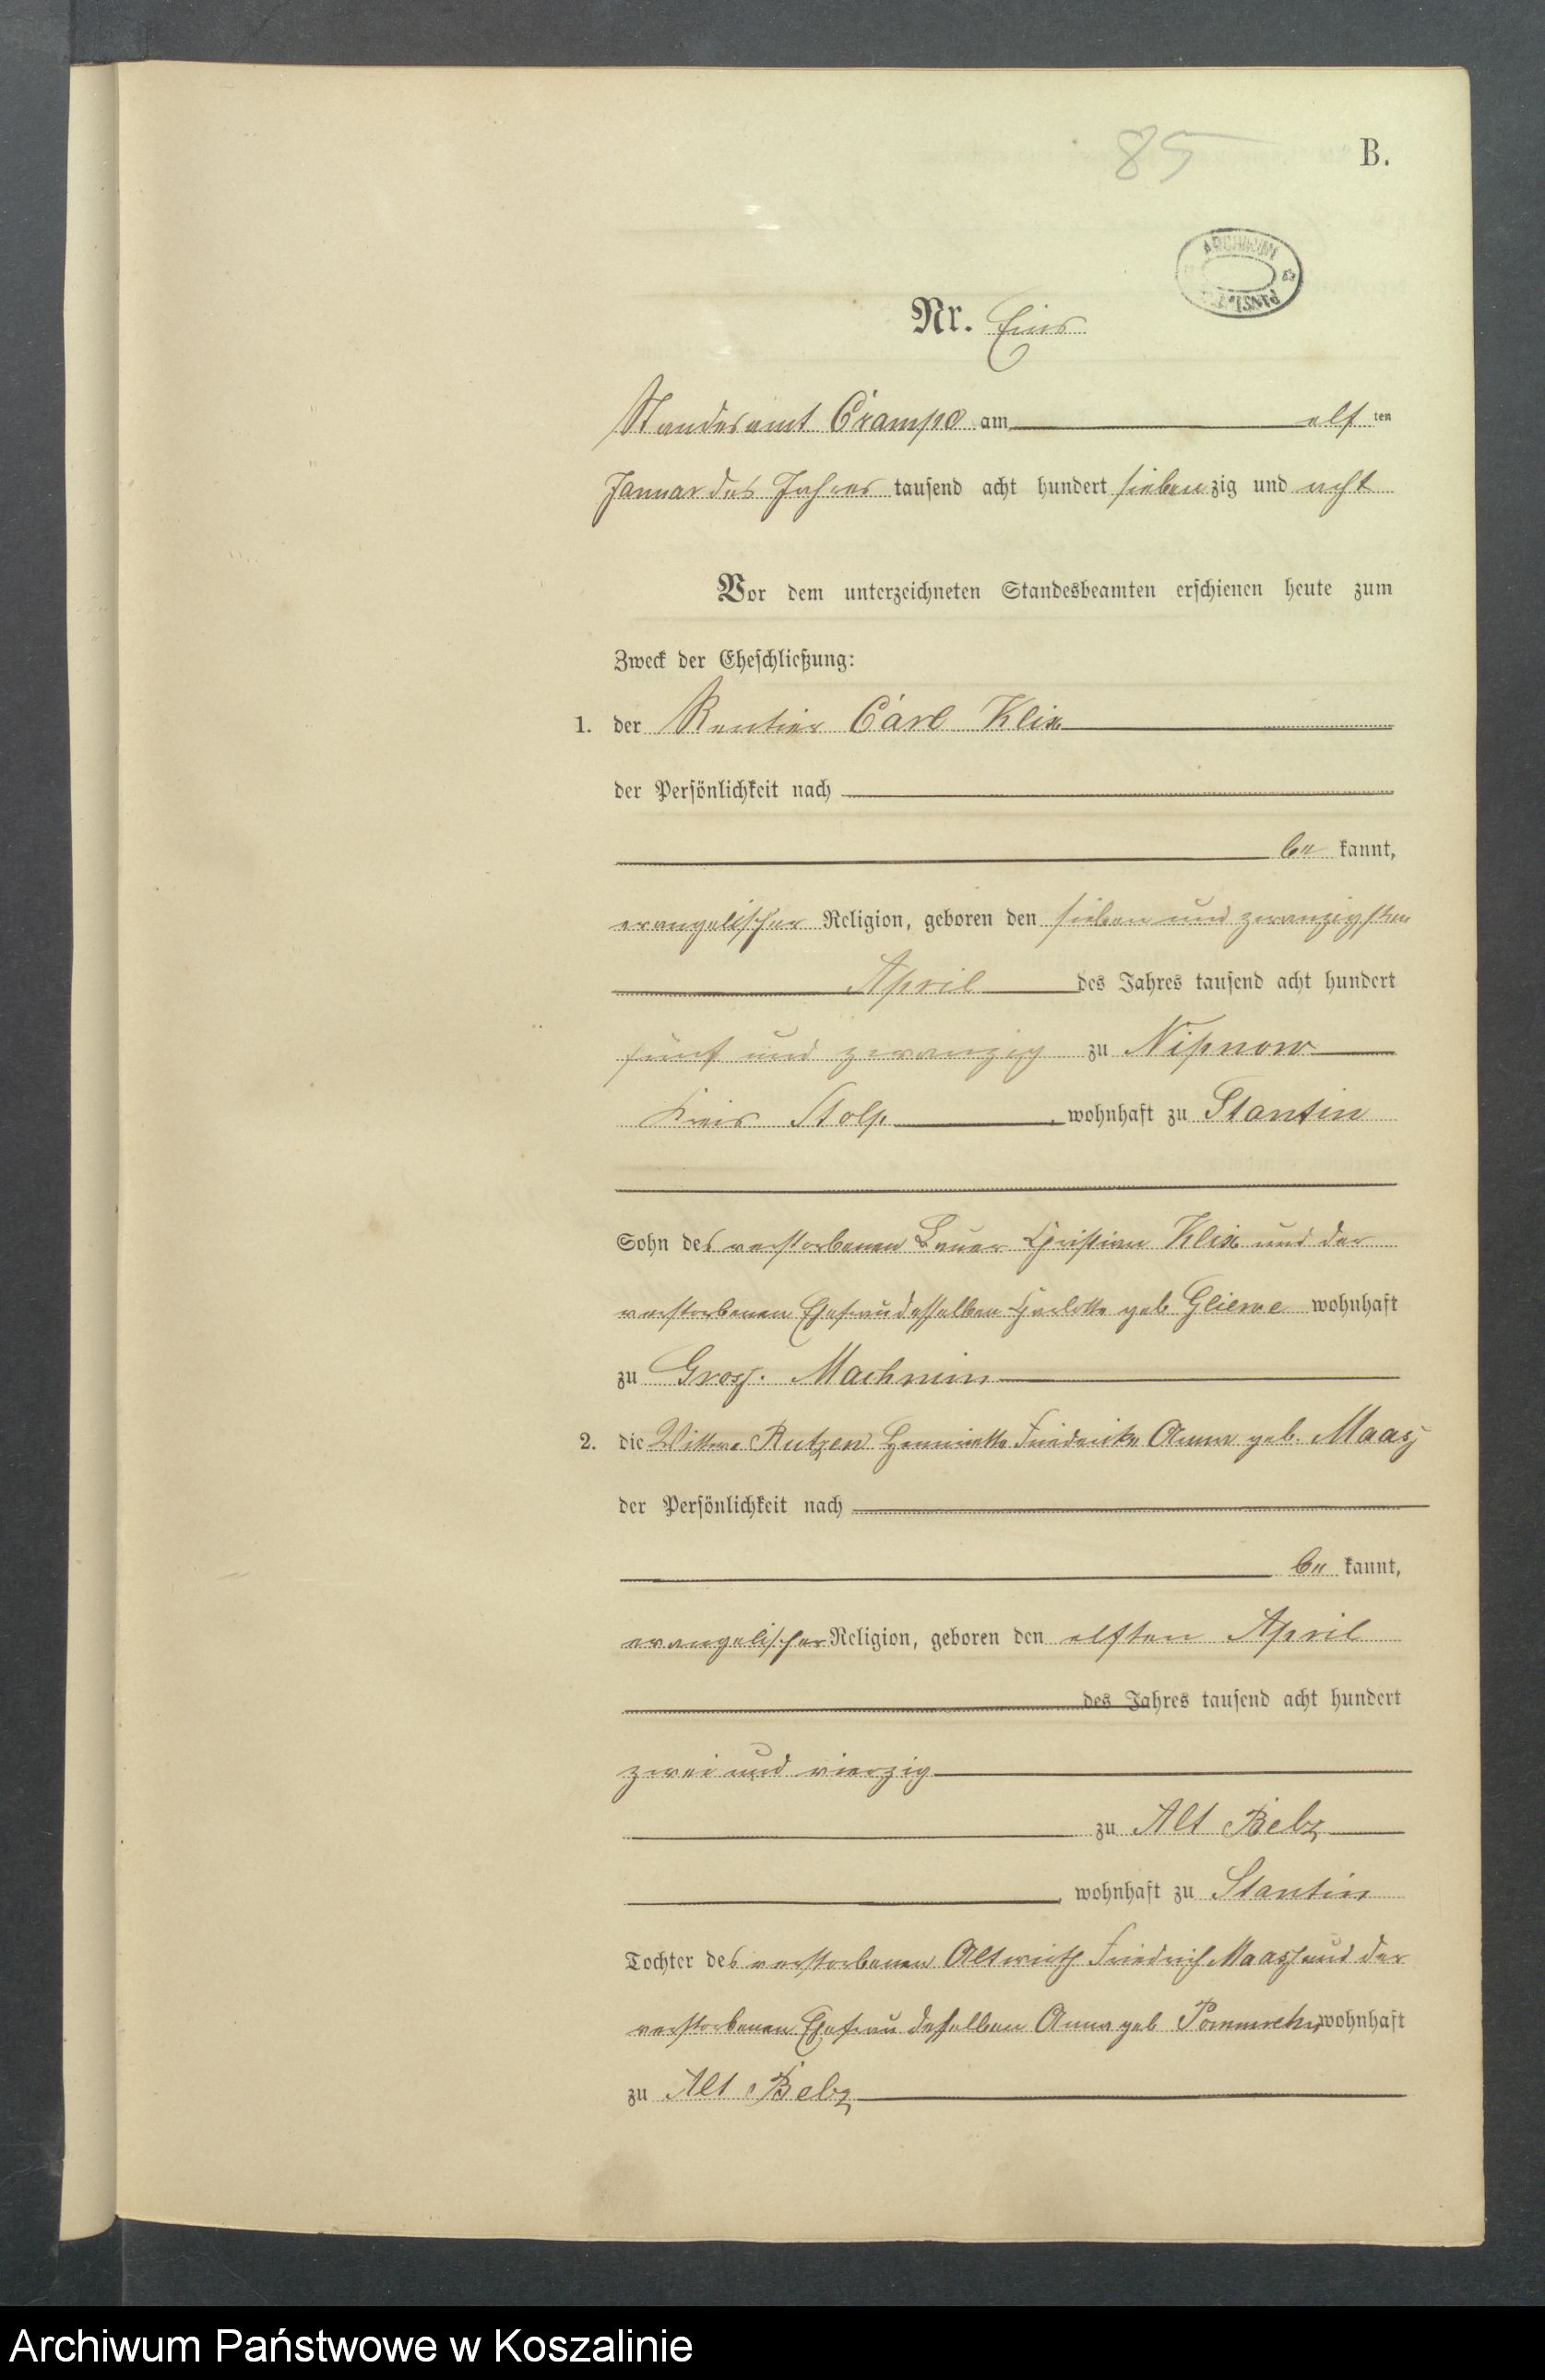 85
B.
ARCHIWUM PAŃSTW
Nr. Eins
Standesamt Crampe am elf ten
Januar des Jahres tausend acht hundert siebenzig und acht
Vor dem unterzeichneten Standesbeamten erschienen heute zum
Zweck der Eheschließung:
1. der Rentier Carl Klix
der Persönlichkeit nach
be kannt,
evangelischer Religion, geboren den sieben und zwanzigsten
April des Jahres tausend acht hundert
fünf und zwanzig zu Nipnow
Kreis Stolp, wohnhaft zu Stantin
Sohn des verstorbenen Bauer Christian Klix und der
verstorbenen Ehefrau desselben Charlotte geb Gliewe wohnhaft
zu Gross. Machmin
2. die Wittwe Rutzen Henriette Friederike Anna geb. Maass
der Persönlichkeit nach
be kannt,
evangelischer Religion, geboren den elften April
des Jahres tausend acht hundert
zwei und vierzig
zu Alt Belz
, wohnhaft zu Stantin
Tochter des verstorbenen Altwirth Friedrich Maass und der
verstorbenen Ehefrau deselben Anna geb Pommrehn wohnhaft
zu Alt Belz
Archiwum Państwowe w Koszalinie